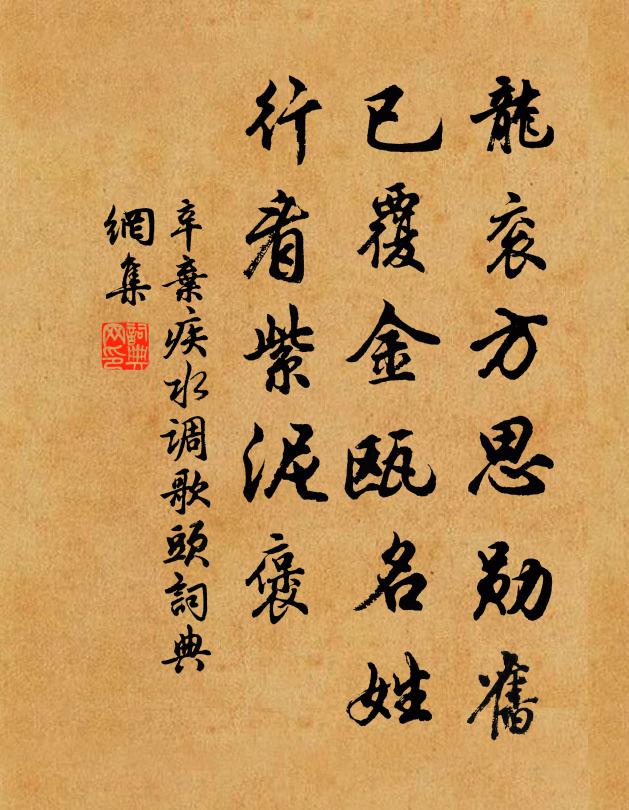 龍衮方思勋舊
已覆金瓯名姓
行看紫泥褒
辛棄疾水调歌頭詞典
網集
詞典网印